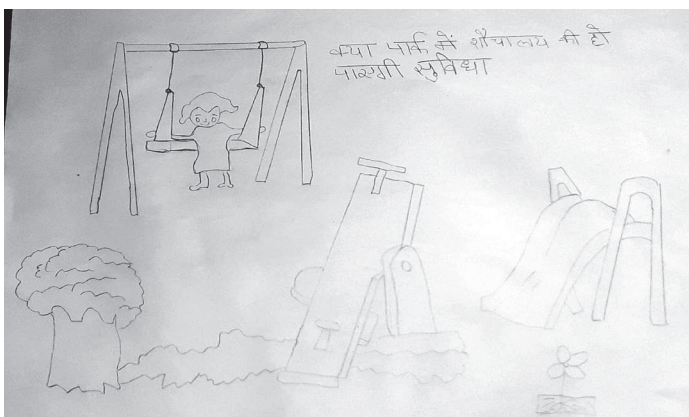 क्या पार्क में शौचालय की हो
पाएगी सुविधा